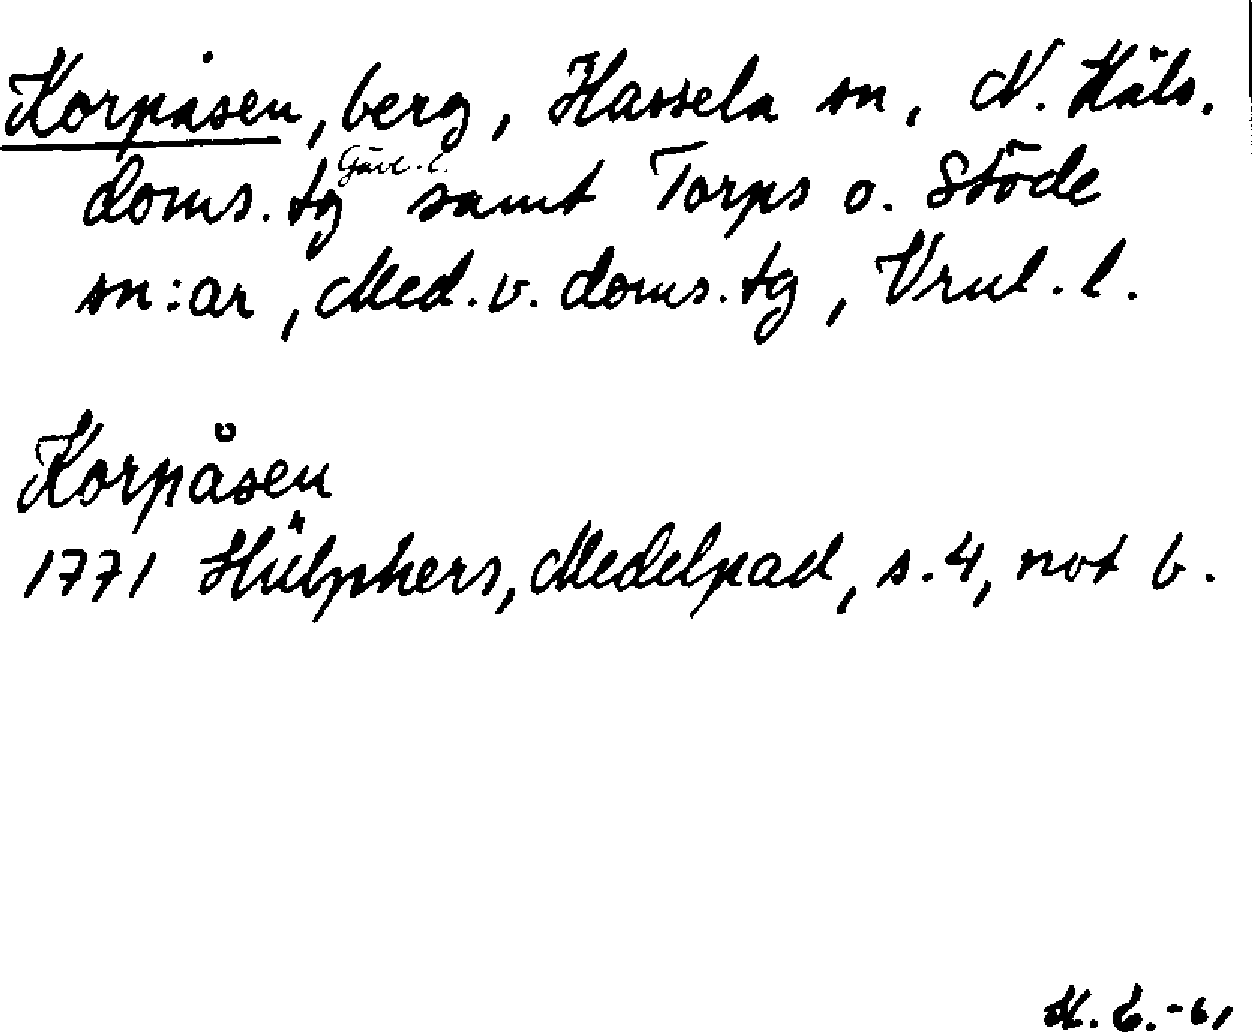 Korpåsen, berg, Hassela sn, N. Häls.
doms.tg Gävl. l. samt Torps o. Stöde
sn:ar, Med. v. doms.tg, Vrnl. l.
Korpåsen
1771 Hülphers, Medelpad, s. 4, not b.